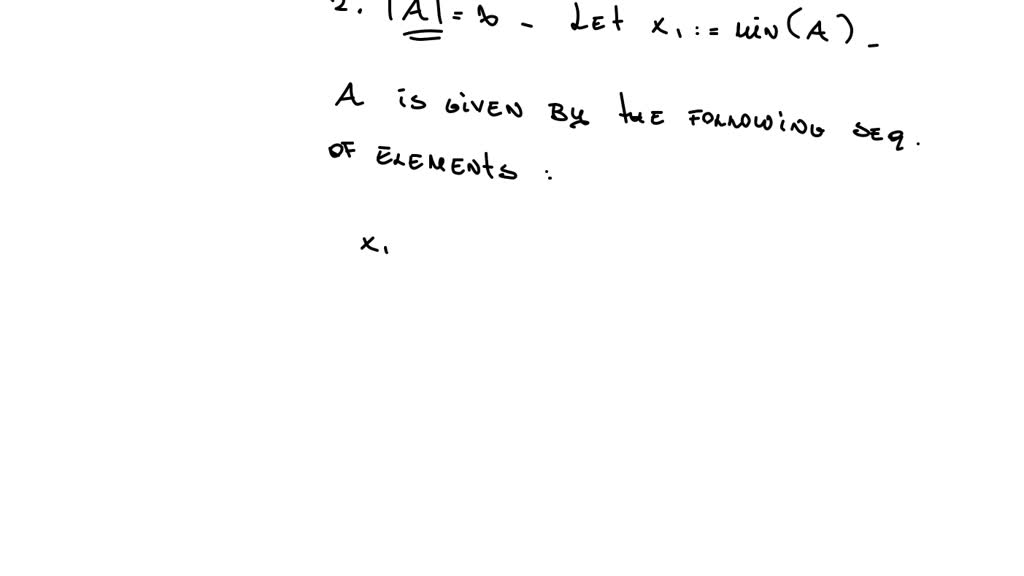 2. |A| = ∞ - LET x₁ := min(A) -
A is GiVEN By thE FOLLOWiNG SEQ.
OF ELEMENtS :
x₁